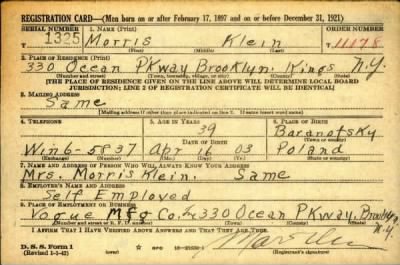 REGISTRATION CARD—(Men born on or after February 17, 1897 and on or before December 31, 1921)
SERIAL NUMBER 1. NAME (Print) ORDER NUMBER
1325 Morris Klein 11178
(First) (Middle) (Last)
2. PLACE OF RESIDENCE (Print)
330 Ocean PKway Brooklyn. Kings N.Y.
(Number and street) (Town, township, village, or city) (County) (State)
[THE PLACE OF RESIDENCE GIVEN ON THE LINE ABOVE WILL DETERMINE LOCAL BOARD
JURISDICTION; LINE 2 OF REGISTRATION CERTIFICATE WILL BE IDENTICAL]
3. MAILING ADDRESS
Same
[Mailing address if other than place indicated on line 2. If same insert word same]
4. TELEPHONE 5. AGE IN YEARS 6. PLACE OF BIRTH
39 Baranofsky
DATE OF BIRTH (Town or county)
Win 6-5837 Apr 16 03 Poland
(Exchange) (Number) (Mo.) (Day) (Yr.) (State or country)
7. NAME AND ADDRESS OF PERSON WHO WILL ALWAYS KNOW YOUR ADDRESS
Mrs. Morris Klein. Same
8. EMPLOYER'S NAME AND ADDRESS
Self Employed
9. PLACE OF EMPLOYMENT OR BUSINESS
Vogue Mfg Co. 330 Ocean PKway, Brooklyn
(Number and street or R. F. D. number) (Town) (County) (State)
N.Y.
I AFFIRM THAT I HAVE VERIFIED ABOVE ANSWERS AND THAT THEY ARE TRUE.
D. S. S. Form 1
(Revised 1-1-42) (over)